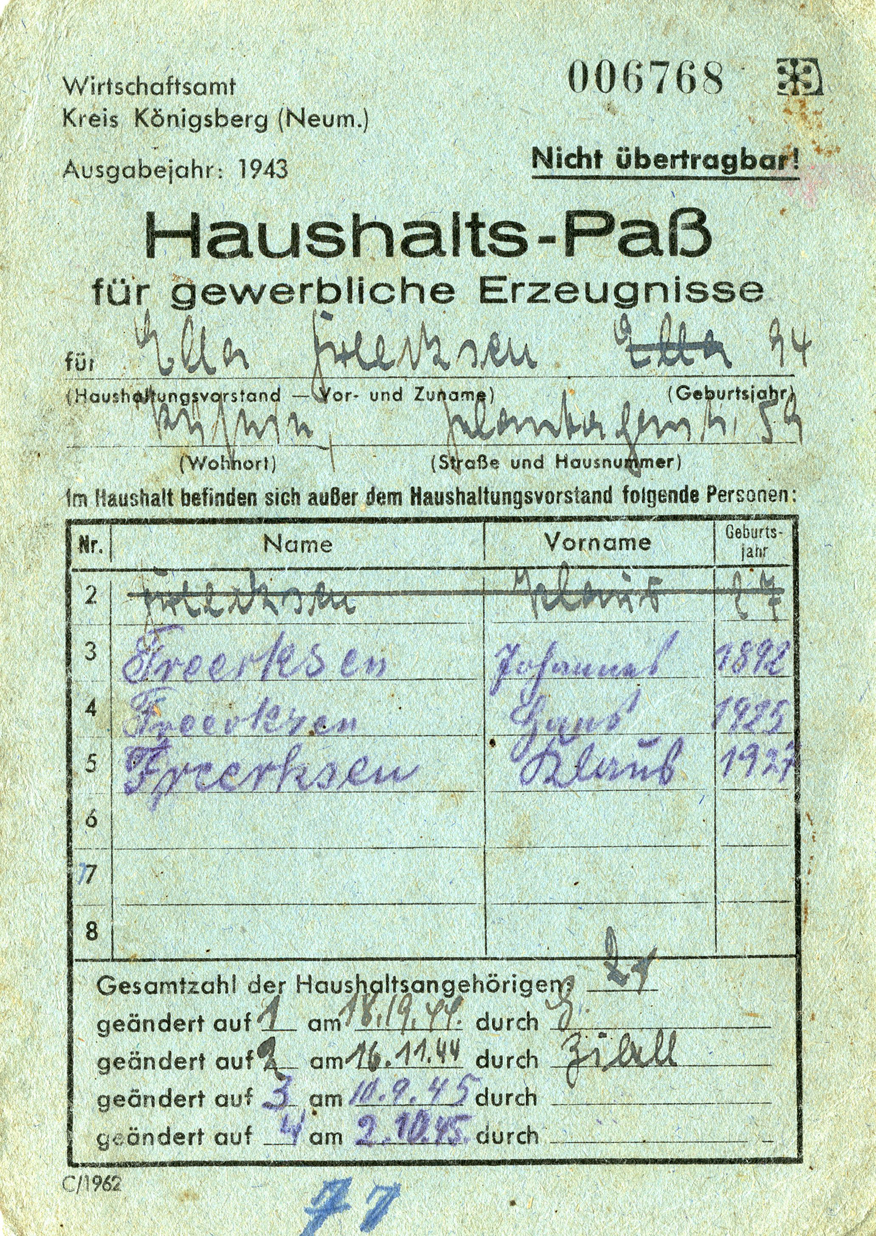 Wirtschaftsamt
Kreis Königsberg (Neum.)
006768
Ausgabejahr: 1943
Nicht übertragbar!
Haushalts-Paß
für gewerbliche Erzeugnisse
für Ella Freerksen Ella 94
(Haushaltungsvorstand — Vor- und Zuname) (Geburtsjahr)
59
(Wohnort) (Straße und Hausnummer)
Im Haushalt befinden sich außer dem Haushaltungsvorstand folgende Personen:
Nr. Name Vorname Geburts-
jahr
2 Freerksen Klaus 27
3 Freerksen Johannes 1892
4 Freerksen Hans 1925
5 Freerksen Klaus 1927
6
7
8
Gesamtzahl der Haushaltsangehörigen: 2
geändert auf 1 am durch
geändert auf 2 am 16.11.44 durch
geändert auf 3 am 10.9.45 durch
geändert auf 4 am 2.10.45 durch
C/1962
77